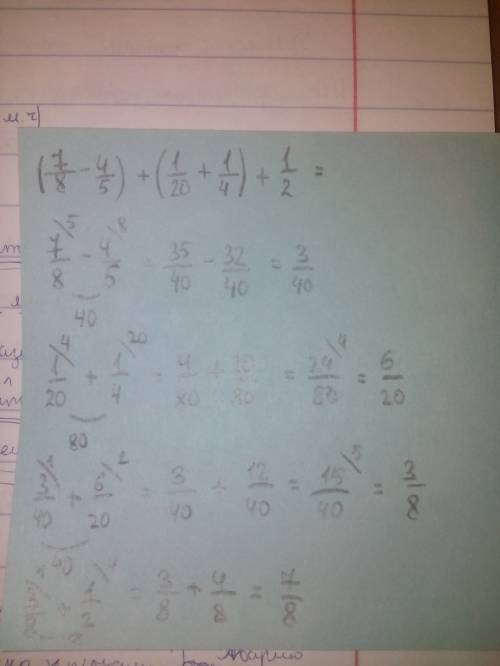 м.г)
(7/8 - 4/5) + (1/20 + 1/4) + 1/2 =
7/8 /5 - 4/5 /8 = 35/40 - 32/40 = 3/40
40
1/20 /4 + 1/4 /20 = 4/80 + 20/80 = 24/80 /4 = 6/20
80
3/40 /1 + 6/20 /2 = 3/40 + 12/40 = 15/40 /5 = 3/8
40
3/8 + 1/2 /4 = 3/8 + 4/8 = 7/8
8